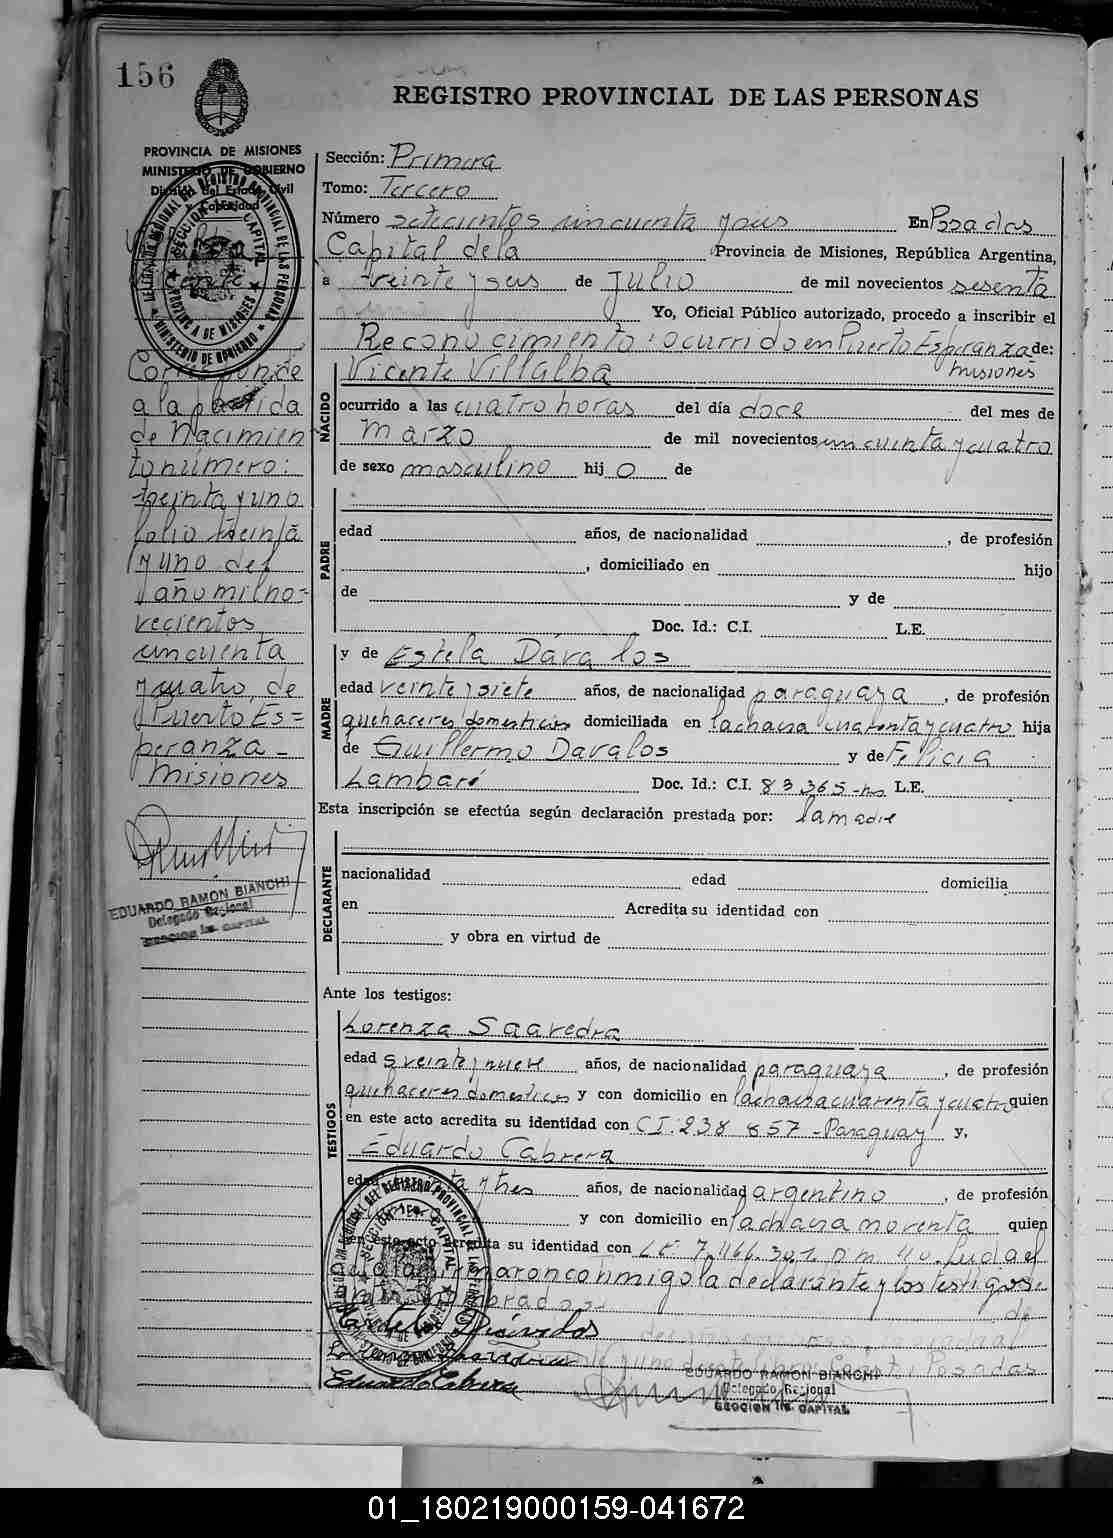 156
REGISTRO PROVINCIAL DE LAS PERSONAS
PROVINCIA DE MISIONES
MINISTERIO DE GOBIERNO
Sección: Primera
Tomo: Tercero
Número setecientos cincuenta y seis En Posadas
Capital de la Provincia de Misiones, República Argentina,
a treinta y seis de Julio de mil novecientos sesenta
Yo, Oficial Público autorizado, procedo a inscribir el
Reconocimiento: ocurrido en Puerto Esperanza de:
Misiones
Vicente Villalba
NACIDO
ocurrido a las cuatro horas del día doce del mes de
Marzo de mil novecientos cincuenta y cuatro
de sexo masculino hij o de
PADRE
edad años, de nacionalidad , de profesión
, domiciliado en hijo
de y de
Doc. Id.: C.I. L.E.
MADRE
y de Estela Dávalos
edad veinte y siete años, de nacionalidad paraguaya , de profesión
quehaceres domesticos domiciliada en la chacra cuarenta y cuatro hija
de Guillermo Davalos y de Felicia
Lambaré Doc. Id.: C.I. 83 365 L.E.
Esta inscripción se efectúa según declaración prestada por: la madre
DECLARANTE
nacionalidad edad domicilia
en Acredita su identidad con
y obra en virtud de
Ante los testigos:
TESTIGOS
Lorenza Saavedra
edad y nueve años, de nacionalidad paraguaya , de profesión
quehaceres domesticos y con domicilio en la chacra cuarenta y cuatro quien
en este acto acredita su identidad con C I: 238 857 - Paraguay y,
Eduardo Cabrera
edad y tres años, de nacionalidad argentino , de profesión
y con domicilio en la chacra noventa quien
en este acto acredita su identidad con
firmaron conmigo la declarante y los testigos
Lorenza Saavedra
Eduardo Cabrera
EDUARDO RAMON BIANCHI
Delegado Regional
SECCION 1ra. CAPITAL
Villalba
Vicente
Corresponde
a la partida
de Nacimien
to número:
treinta y uno
folio treinta
y uno del
año mil no-
vecientos
cincuenta
y cuatro, de
Puerto Es=
peranza -
Misiones
EDUARDO RAMON BIANCHI
Delegado Regional
SECCION 1ra. CAPITAL
01_180219000159-041672